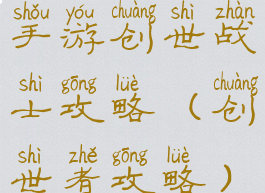 shǒu yóu chuàng shì zhàn
手游创世战
shì gōng lüè chuàng
士攻略（创
shì zhě gōng lüè
世者攻略）